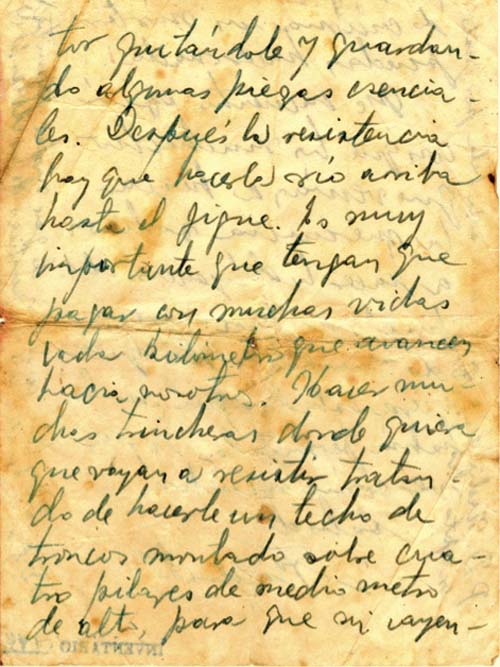 tor quitándole y guardan-
do algunas piezas esencia-
les. Después la resistencia
hay que hacerla río arriba
hasta el Jigue. Es muy
importante que tengan que
pagar con muchas vidas
cada kilómetro que avancen
hacia nosotros. Hacer mu-
chas trincheras donde quiera
que vayan a resistir tratan-
do de hacerle un techo de
troncos montado sobre cua-
tro pilares de medio metro
de alto, para que si
INVENTARIO